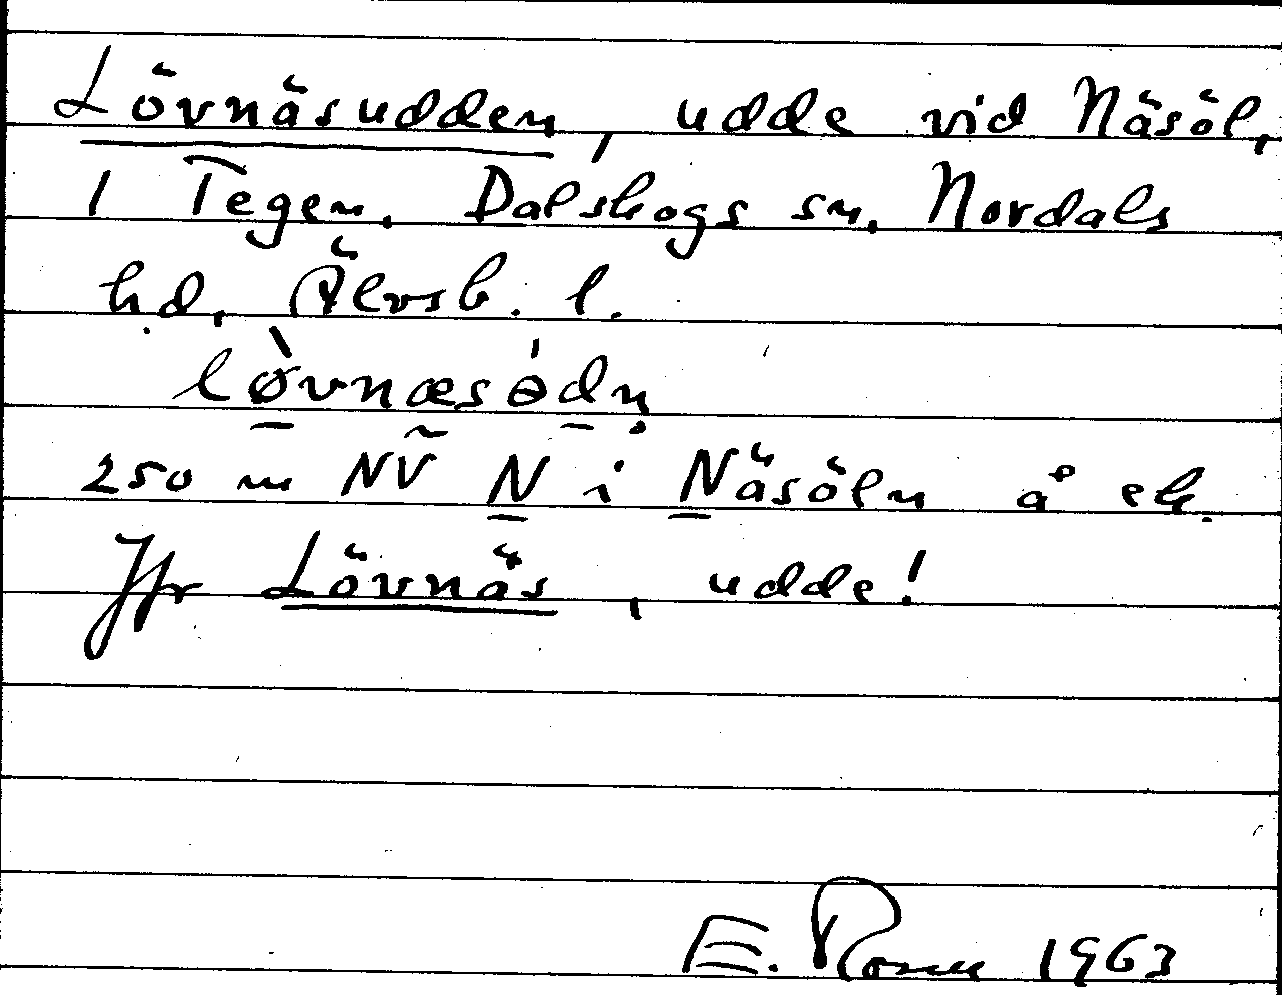 Lövnäsudden, udde vid Näsöl,
1 Tegen, Dalskogs sn, Nordals
hd, Älvsb. l.
lø̀vnæsɵ́dn̥
250 m NV N i Näsöln å ek.
Jfr Lövnäs, udde!
E. 1963